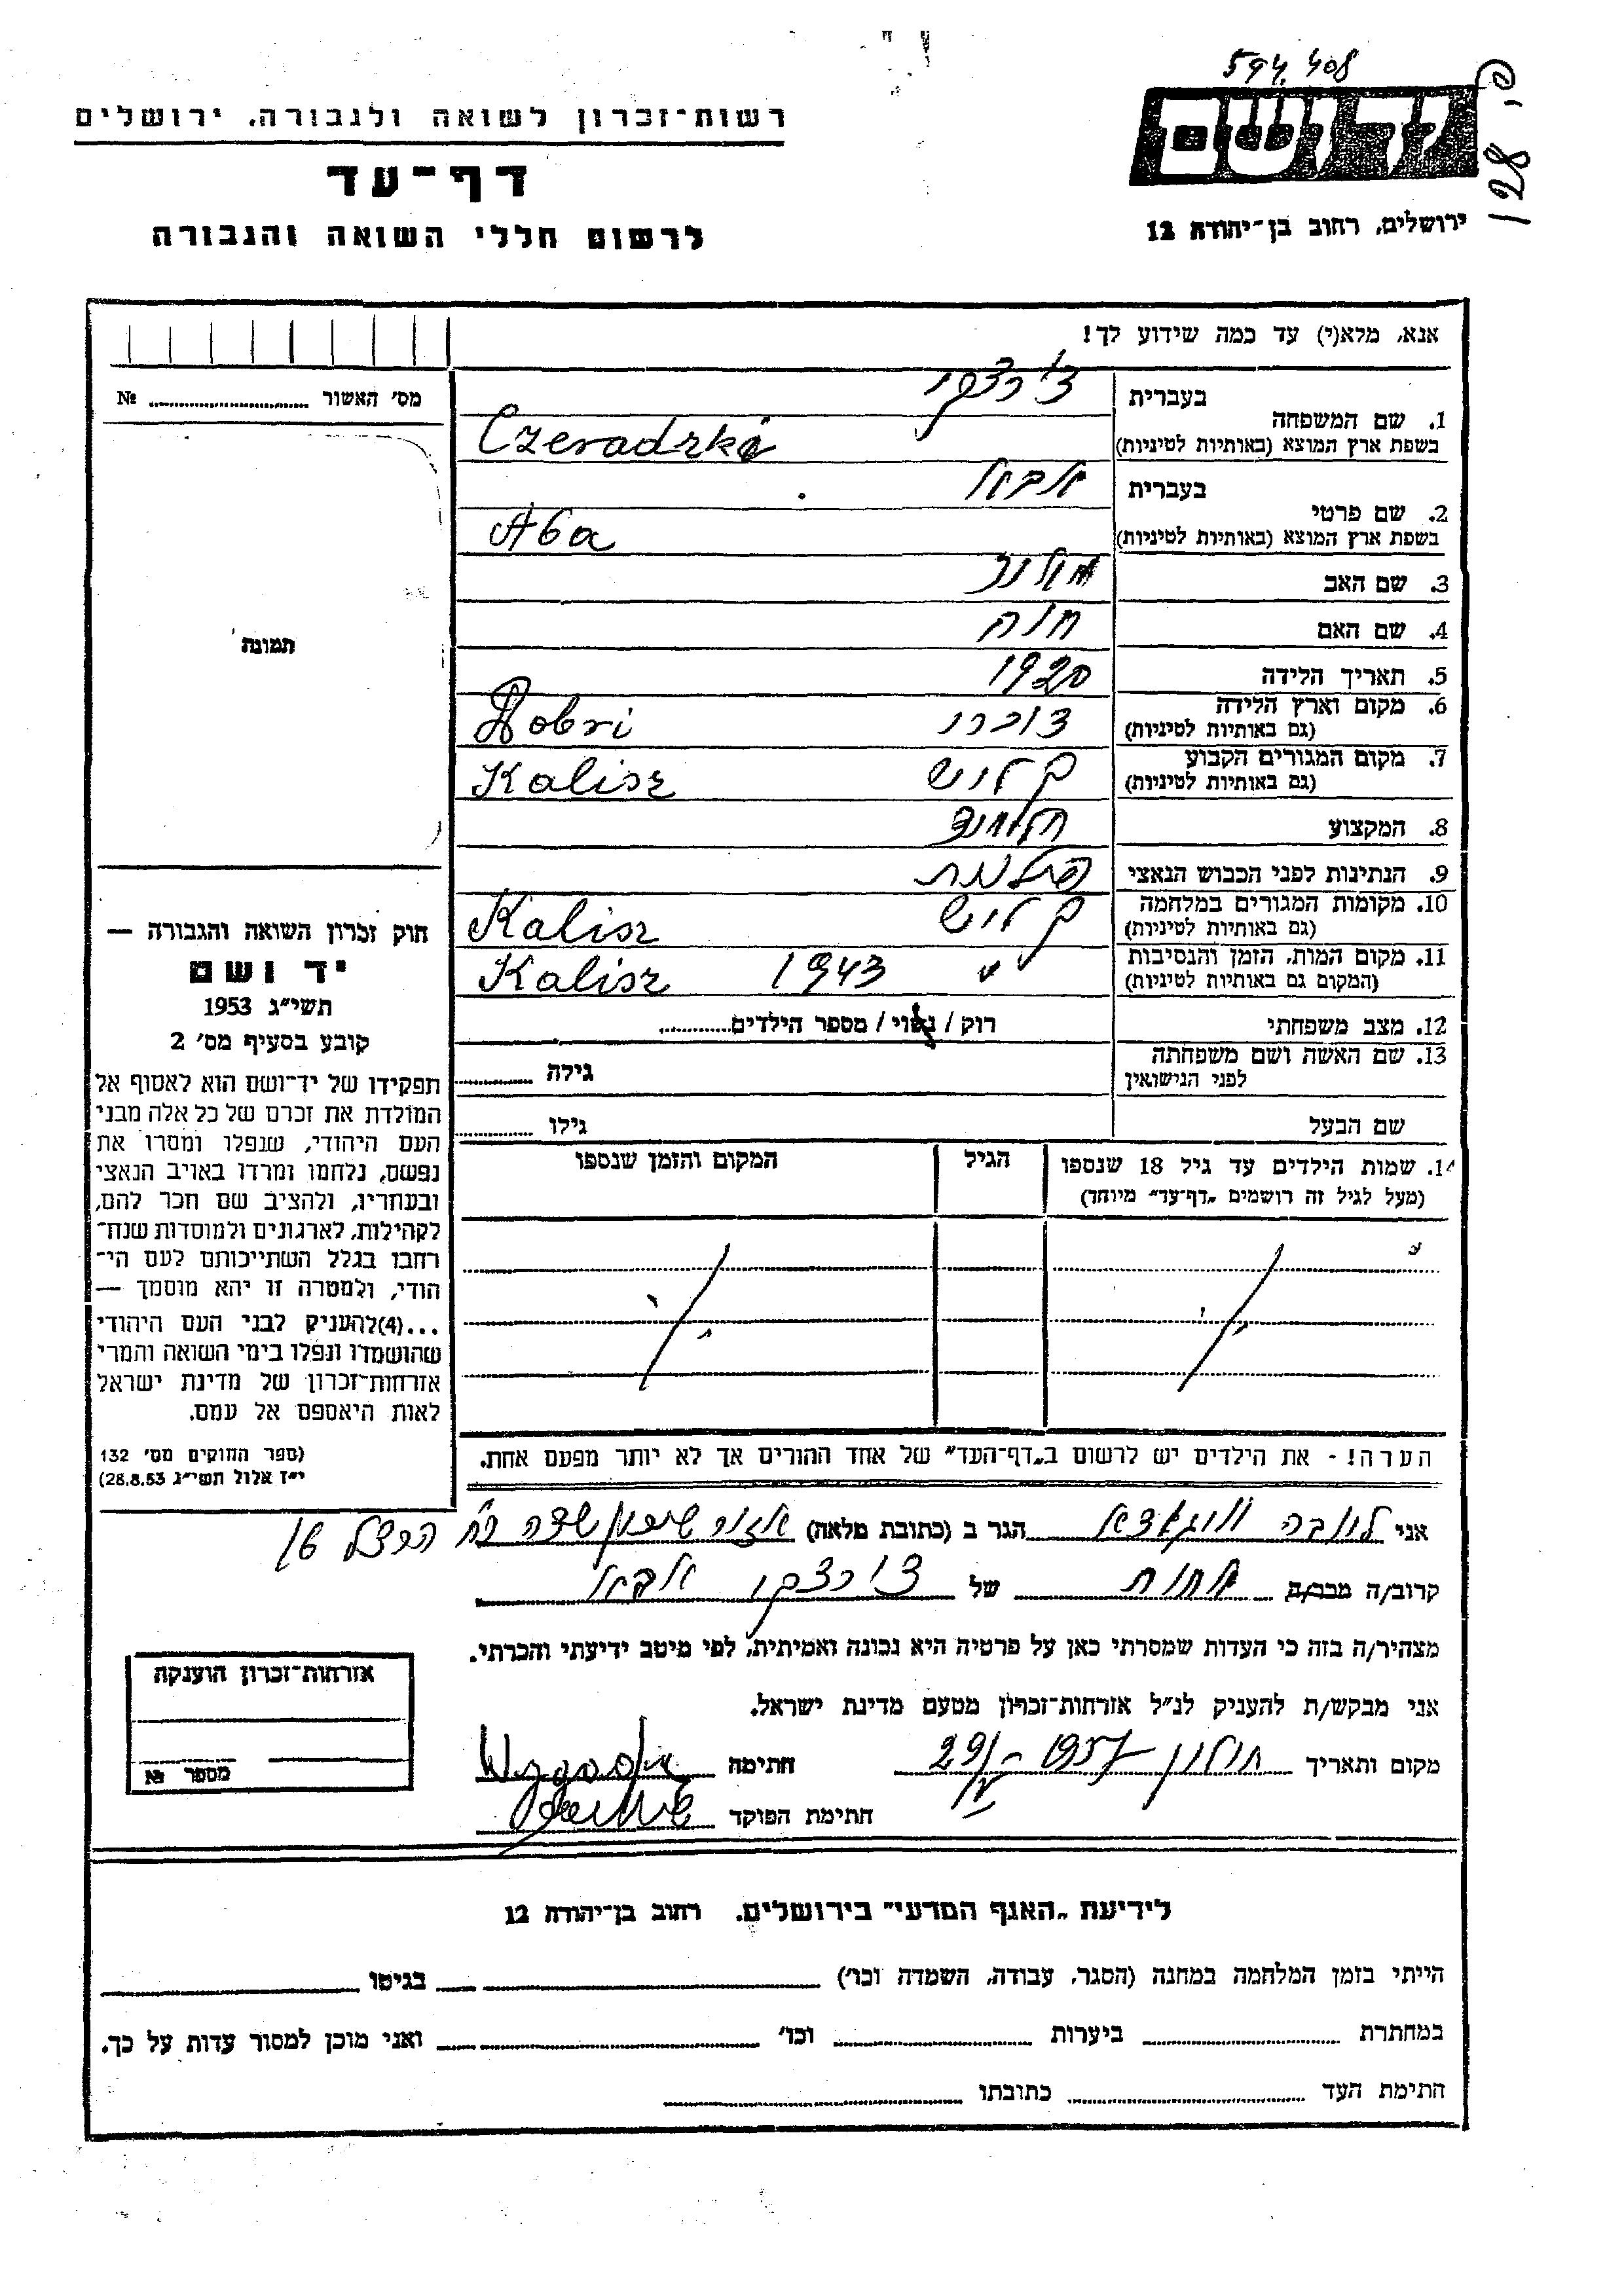 594 408
רשות־זכרון לשואה ולגבורה, ירושלים
ידושם
פ. 128
דף־עד
לרשום חללי השואה והגבורה
ירושלים, רחוב בן־יהודה 12
אנא, מלא(י) עד כמה שידוע לך!
מס׳ האשור № 
בעברית
1. שם המשפחה
בשפת ארץ המוצא (באותיות לטיניות) Czeradzka
בעברית
2. שם פרטי
בשפת ארץ המוצא (באותיות לטיניות) Aba
3. שם האב
4. שם האם חוה
תמונה
5. תאריך הלידה 1920
6. מקום וארץ הלידה דוברי Dobri
(גם באותיות לטיניות)
7. מקום המגורים הקבוע קליש Kalisz
(גם באותיות לטיניות)
8. המקצוע
9. הנתינות לפני הכבוש הנאצי פולנית
10. מקומות המגורים במלחמה קליש Kalisz
(גם באותיות לטיניות)
11. מקום המות, הזמן והנסיבות " 1943 Kalisz
(המקום גם באותיות לטיניות)
12. מצב משפחתי רוק / נשוי / מספר הילדים
13. שם האשה ושם משפחתה
לפני הנישואין גילה
שם הבעל גילו
14. שמות הילדים עד גיל 18 שנספו הגיל המקום והזמן שנספו
(מעל לגיל זה רושמים „דף־עד״ מיוחד)
חוק זכרון השואה והגבורה —
יד ושם
תשי״ג 1953
קובע בסעיף מס׳ 2
תפקידו של יד־ושם הוא לאסוף אל
המולדת את זכרם של כל אלה מבני
העם היהודי, שנפלו ומסרו את
נפשם, נלחמו ומרדו באויב הנאצי
ובעוזריו, ולהציב שם וזכר להם,
לקהילות, לארגונים ולמוסדות שנח־
רבו בגלל השתייכותם לעם הי־
הודי, ולמטרה זו יהא מוסמך —
...(4)להעניק לבני העם היהודי
שהושמדו ונפלו בימי השואה והמרי
אזרחות־זכרון של מדינת ישראל
לאות היאספם אל עמם.
(ספר החוקים מס׳ 132
י״ז אלול תשי״ג 28.8.53)
הערה! - את הילדים יש לרשום ב„דף־העד״ של אחד ההורים אך לא יותר מפעם אחת.
אני לובה הגר ב (כתובת מלאה) אזור רח הרצל 16
קרוב/ה מכר/ה אחות של
מצהיר/ה בזה כי העדות שמסרתי כאן על פרטיה היא נכונה ואמיתית, לפי מיטב ידיעתי והכרתי.
אני מבקש/ת להעניק לנ״ל אזרחות־זכרון מטעם מדינת ישראל.
מקום ותאריך חולון 1957 חתימה
חתימת הפוקד
אזרחות־זכרון הוענקה
מספר №
לידיעת „האגף המדעי״ בירושלים. רחוב בן־יהודה 12
הייתי בזמן המלחמה במחנה (הסגר, עבודה, השמדה וכו׳) בגיטו
במחתרת ביערות וכו׳ ואני מוכן למסור עדות על כך.
חתימת העד כתובתו